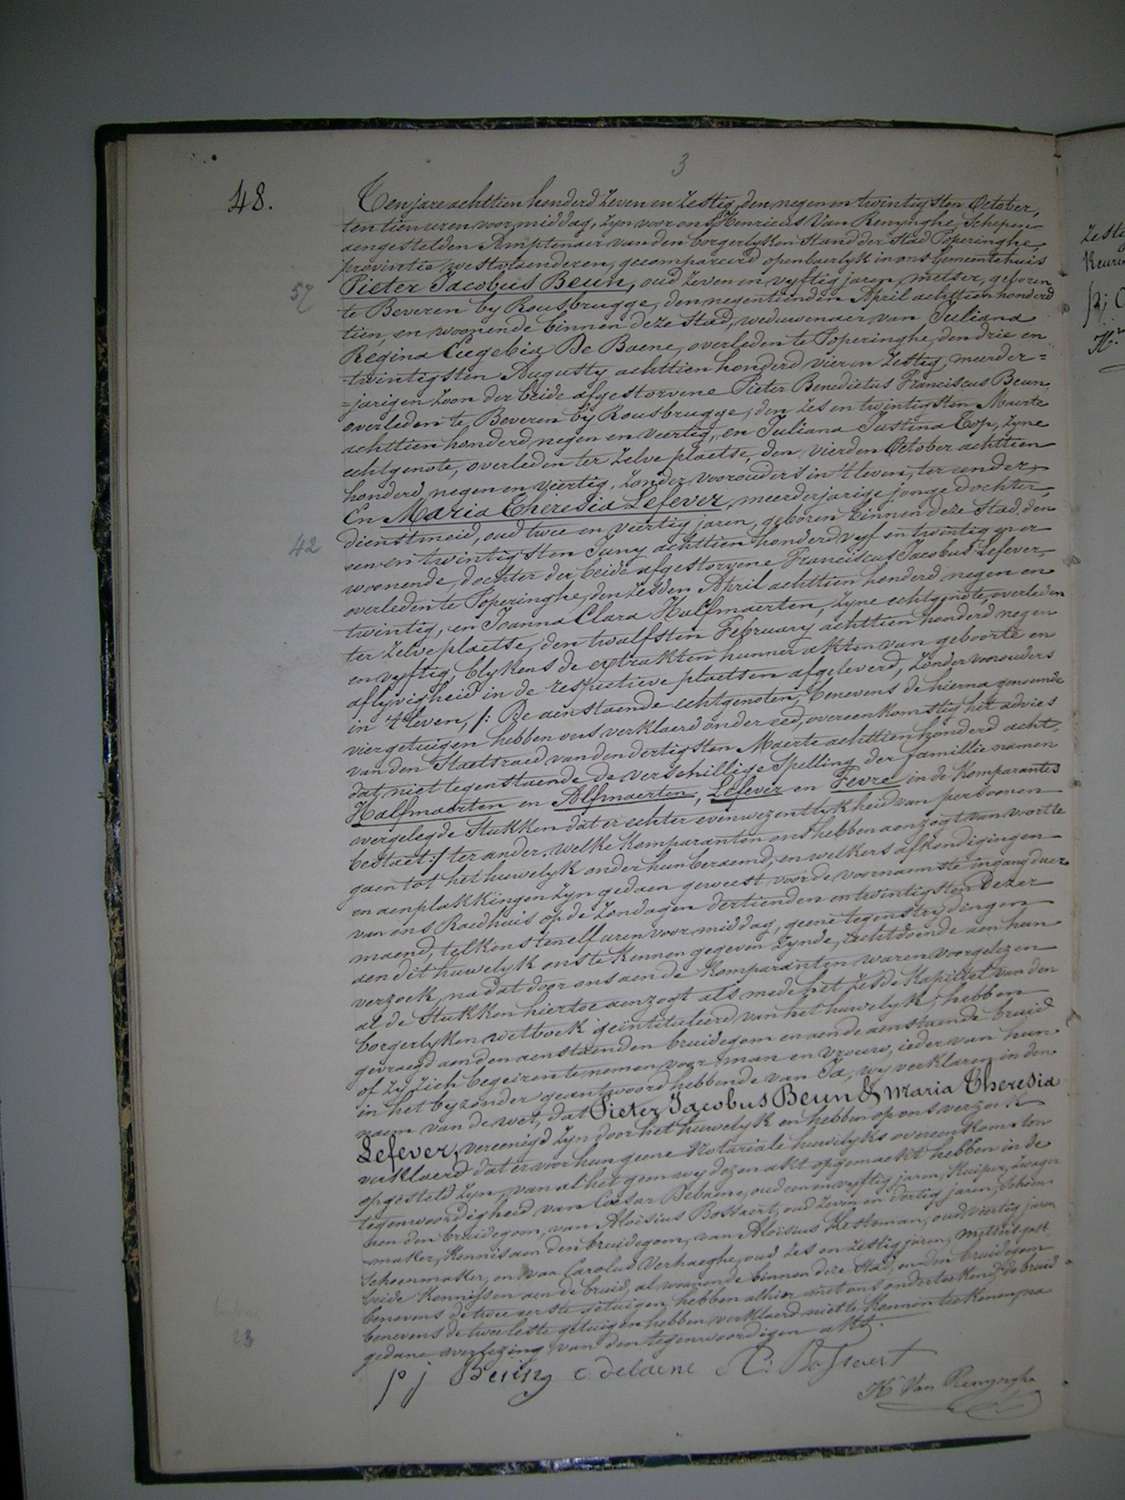 3
48.
Ten jare achttien honderd zeven en zestig, den negen en twintigsten October,
ten tien uren voor middag, zyn voor ons Henricus Van Renynghe, Schepen
aengestelden Amptenaer van den borgerlyken Stand der Stad Poperinghe,
provintie westvlaenderen, gecompareerd openbaerlyk in ons Gemeentehuis
57
Pieter Jacobus Beun, oud zeven en vyftig jaren, metser, geboren
te Beveren by Rousbrugge, den negentienden April achttien honderd
tien, en woonende binnen deze Stad, weduwenaer van Juliana
Regina Eugebia De Baene, overleden te Poperinghe, den drie en
twintigsten Augusty achttien honderd vier en zestig, meerder=
=jarigen zoon der beide afgestorvene Pieter Benedictus Franciscus Beun
overleden te Beveren by Rousbrugge, den zes en twintigsten Maerte
achttien honderd negen en veertig, en Juliana Justina Top, zyne
echtgenote, overleden ter zelve plaetse, den vierden October achttien
honderd negen en veertig, zonder voorouders in 't leven, ter eender,
En Maria Theresia Lefever, meerderjarige jonge dochter,
42
dienstmeid, oud twee en veertig jaren, geboren binnen deze Stad, den
een en twintigsten Juny achttien honderd vyf en twintig, en er
woonende, dochter der beide afgestorvene Franciscus Jacobus Lefever,
overleden te Poperinghe, den zesden April achttien honderd negen en
twintig, en Joanna Clara Halfmaerten, zyne echtgenote, overleden
ter zelve plaetse, den twalfsten February achttien honderd negen
en vyftig, blykens de extrakten hunner akten van geboorte en
aflyvigheid in de respective plaetsen afgeleverd, zonder voorouders
in 't leven, /: De aenstaende echtgenoten, benevens de hierna genoemde
vier getuigen hebben ons verklaerd onder eed, overeenkomstig het advies
van den Staetsraed van den dertigsten Maerte achttien honderd acht,
dat, niet tegenstaende de verschillige spelling der famillie namen
Halfmaerten en Alfmaerten, Lefever en Fevre in de komparantes
overgelegde Stukken dat er echter evenwezentlykheid van persoonen
bestaet :/ ter ander. welke komparanten ons hebben aenzogt van voorts te
gaen tot het huwelyk onder hun beraemd, en welkers afkondigingen
en aenplakkingen zyn gedaen geweest voor de voornaemste ingangdeur
van ons Raedhuis op de zondagen dertienden en twintigsten dezer
maend, telkens ten elf uren voor middag, geene tegenstrydingen
aen dit huwelyk ons te kennen gegeven zynde, rechtdoende aen hun
verzoek, na dat door ons aen de komparanten waren voorgelezen
al de Stukken hiertoe aenzogt als mede het zesde kapittel van den
borgerlyken wetboek geïntituleerd van het huwelyk, hebben
gevraegd aen den aenstaenden bruidegom en aen de aenstaende bruid
of zy zich begeiren te nemen voor man en vrouw, ieder van hun
in het byzonder geantwoord hebbende van Ja, wy verklaren in den
naem van de wet, dat Pieter Jacobus Beun & Maria Theresia
Lefever, vereenigd zyn door het huwelyk en hebben op ons verzoek
verklaerd dat er voor hun geene Notariale huwelyks overeenkomsten
opgesteld zyn, van al het gene wy dezen akt opgemaekt hebben in de
tegenwoordigheid van Cesar Debaene, oud een en vyftig jaren, Kuiper, zwager
aen den bruidegom, van Aloisius Bossaert, oud zeven en dertig jaren, Schoen-
maker, kennis aen den bruidegom, van Aloisius Kesteman, oud veertig jaren
Schoenmaker, en van Carolus Verhaeghe, oud zes en zestig jaren,
beide kennissen aen de bruid, al woonende binnen deze Stad, en den bruidegom
benevens de twee eerste getuigen hebben alhier met ons onderteekend, de bruid
benevens de twee leste getuigen hebben verklaerd niet te kennen teekenen, na
gedane voorlezing van den tegenwoordigen akt.
23
p j Beun c debaene A: Bossaert
H. Van Renynghe